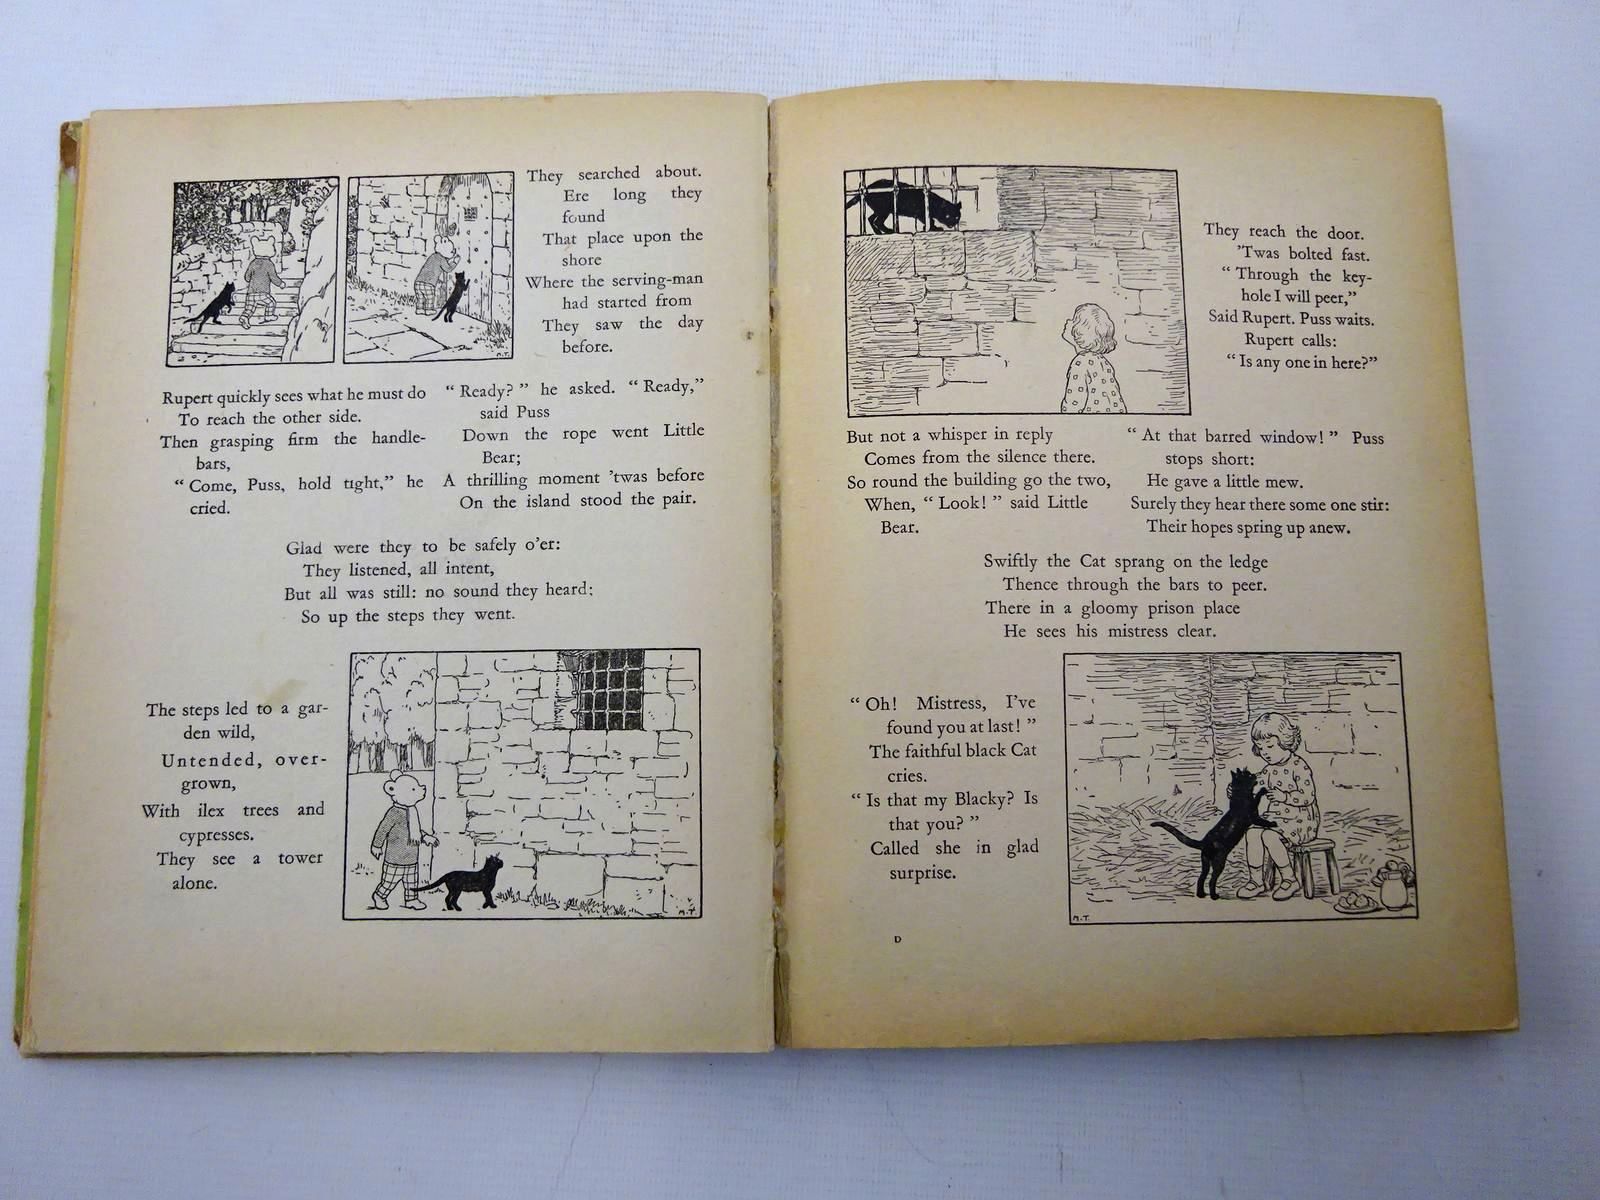 They searched about.
Ere long they
found
That place upon the
shore
Where the serving-man
had started from
They saw the day
before.
Rupert quickly sees what he must do
To reach the other side.
Then grasping firm the handle-
bars,
“ Come, Puss, hold tight,” he
cried.
“ Ready? ” he asked. “ Ready,”
said Puss
Down the rope went Little
Bear;
A thrilling moment ’twas before
On the island stood the pair.
Glad were they to be safely o’er:
They listened, all intent,
But all was still: no sound they heard:
So up the steps they went.
The steps led to a gar-
den wild,
Untended, over-
grown,
With ilex trees and
cypresses.
They see a tower
alone.
M.T.
They reach the door.
’Twas bolted fast.
“ Through the key-
hole I will peer,”
Said Rupert. Puss waits.
Rupert calls:
“ Is any one in here?”
But not a whisper in reply
Comes from the silence there.
So round the building go the two,
When, “ Look! ” said Little
Bear.
“ At that barred window! ” Puss
stops short:
He gave a little mew.
Surely they hear there some one stir:
Their hopes spring up anew.
Swiftly the Cat sprang on the ledge
Thence through the bars to peer.
There in a gloomy prison place
He sees his mistress clear.
“ Oh! Mistress, I’ve
found you at last! ”
The faithful black Cat
cries.
“ Is that my Blacky? Is
that you? ”
Called she in glad
surprise.
M.T.
D